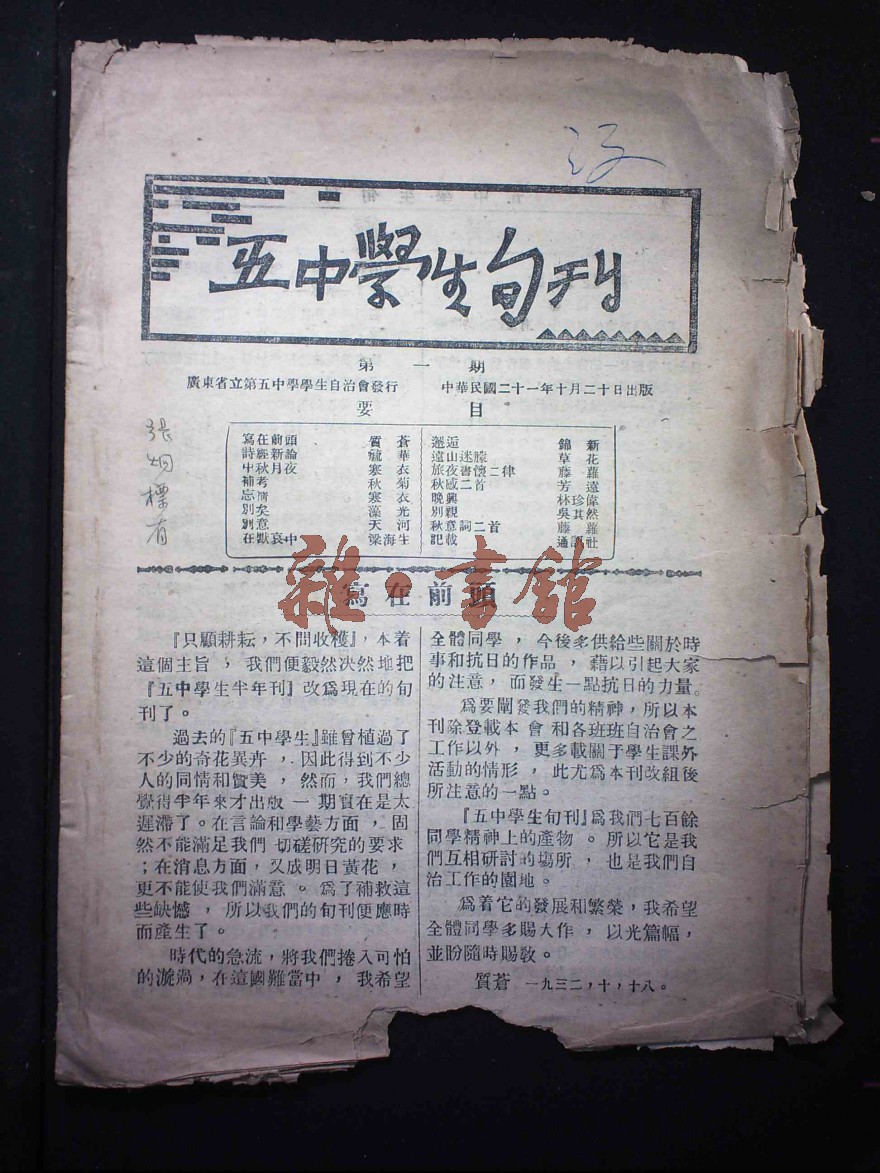 五中學生旬刊
第一期
廣東省立第五中學學生自治會發行 中華民國二十一年十月二十日出版
要目
寫在前頭 質蒼
詩經新論 毓華
中秋月夜 寒衣
補考 秋菊
忘情 寒衣
別矣 藻光
別意 天河
在默哀中 梁海生
邂逅 錦新
遠山迷朦 草花
旅夜書懷二律 藤蘿
秋感二首 芳遠
晚興 林珍偉
別親 吳其然
秋意詞二首 藤蘿
記載 通訊社
雜·書館
寫在前頭
『只顧耕耘，不問收穫』，本着
這個主旨，我們便毅然决然地把
『五中學生半年刊』改爲現在的旬
刊了。
過去的『五中學生』雖曾植過了
不少的奇花異卉，因此得到不少
人的同情和贊美，然而，我們總
覺得半年來才出版一期實在是太
遲滯了。在言論和學藝方面，固
然不能滿足我們切磋研究的要求
；在消息方面，又成明日黃花，
更不能使我們滿意。爲了補救這
些缺憾，所以我們的旬刊便應時
而產生了。
時代的急流，將我們捲入可怕
的漩渦，在這國難當中，我希望
全體同學，今後多供給些關於時
事和抗日的作品，藉以引起大家
的注意，而發生一點抗日的力量。
爲要闡發我們的精神，所以本
刊除登載本會和各班班自治會之
工作以外，更多載關于學生課外
活動的情形，此尤爲本刊改組後
所注意的一點。
『五中學生旬刊』爲我們七百餘
同學精神上的產物。所以它是我
們互相研討的塲所，也是我們自
治工作的園地。
爲着它的發展和繁榮，我希望
全體同學多賜大作，以光篇幅，
並盼隨時賜敎。
質蒼 一九三二，十，十八。